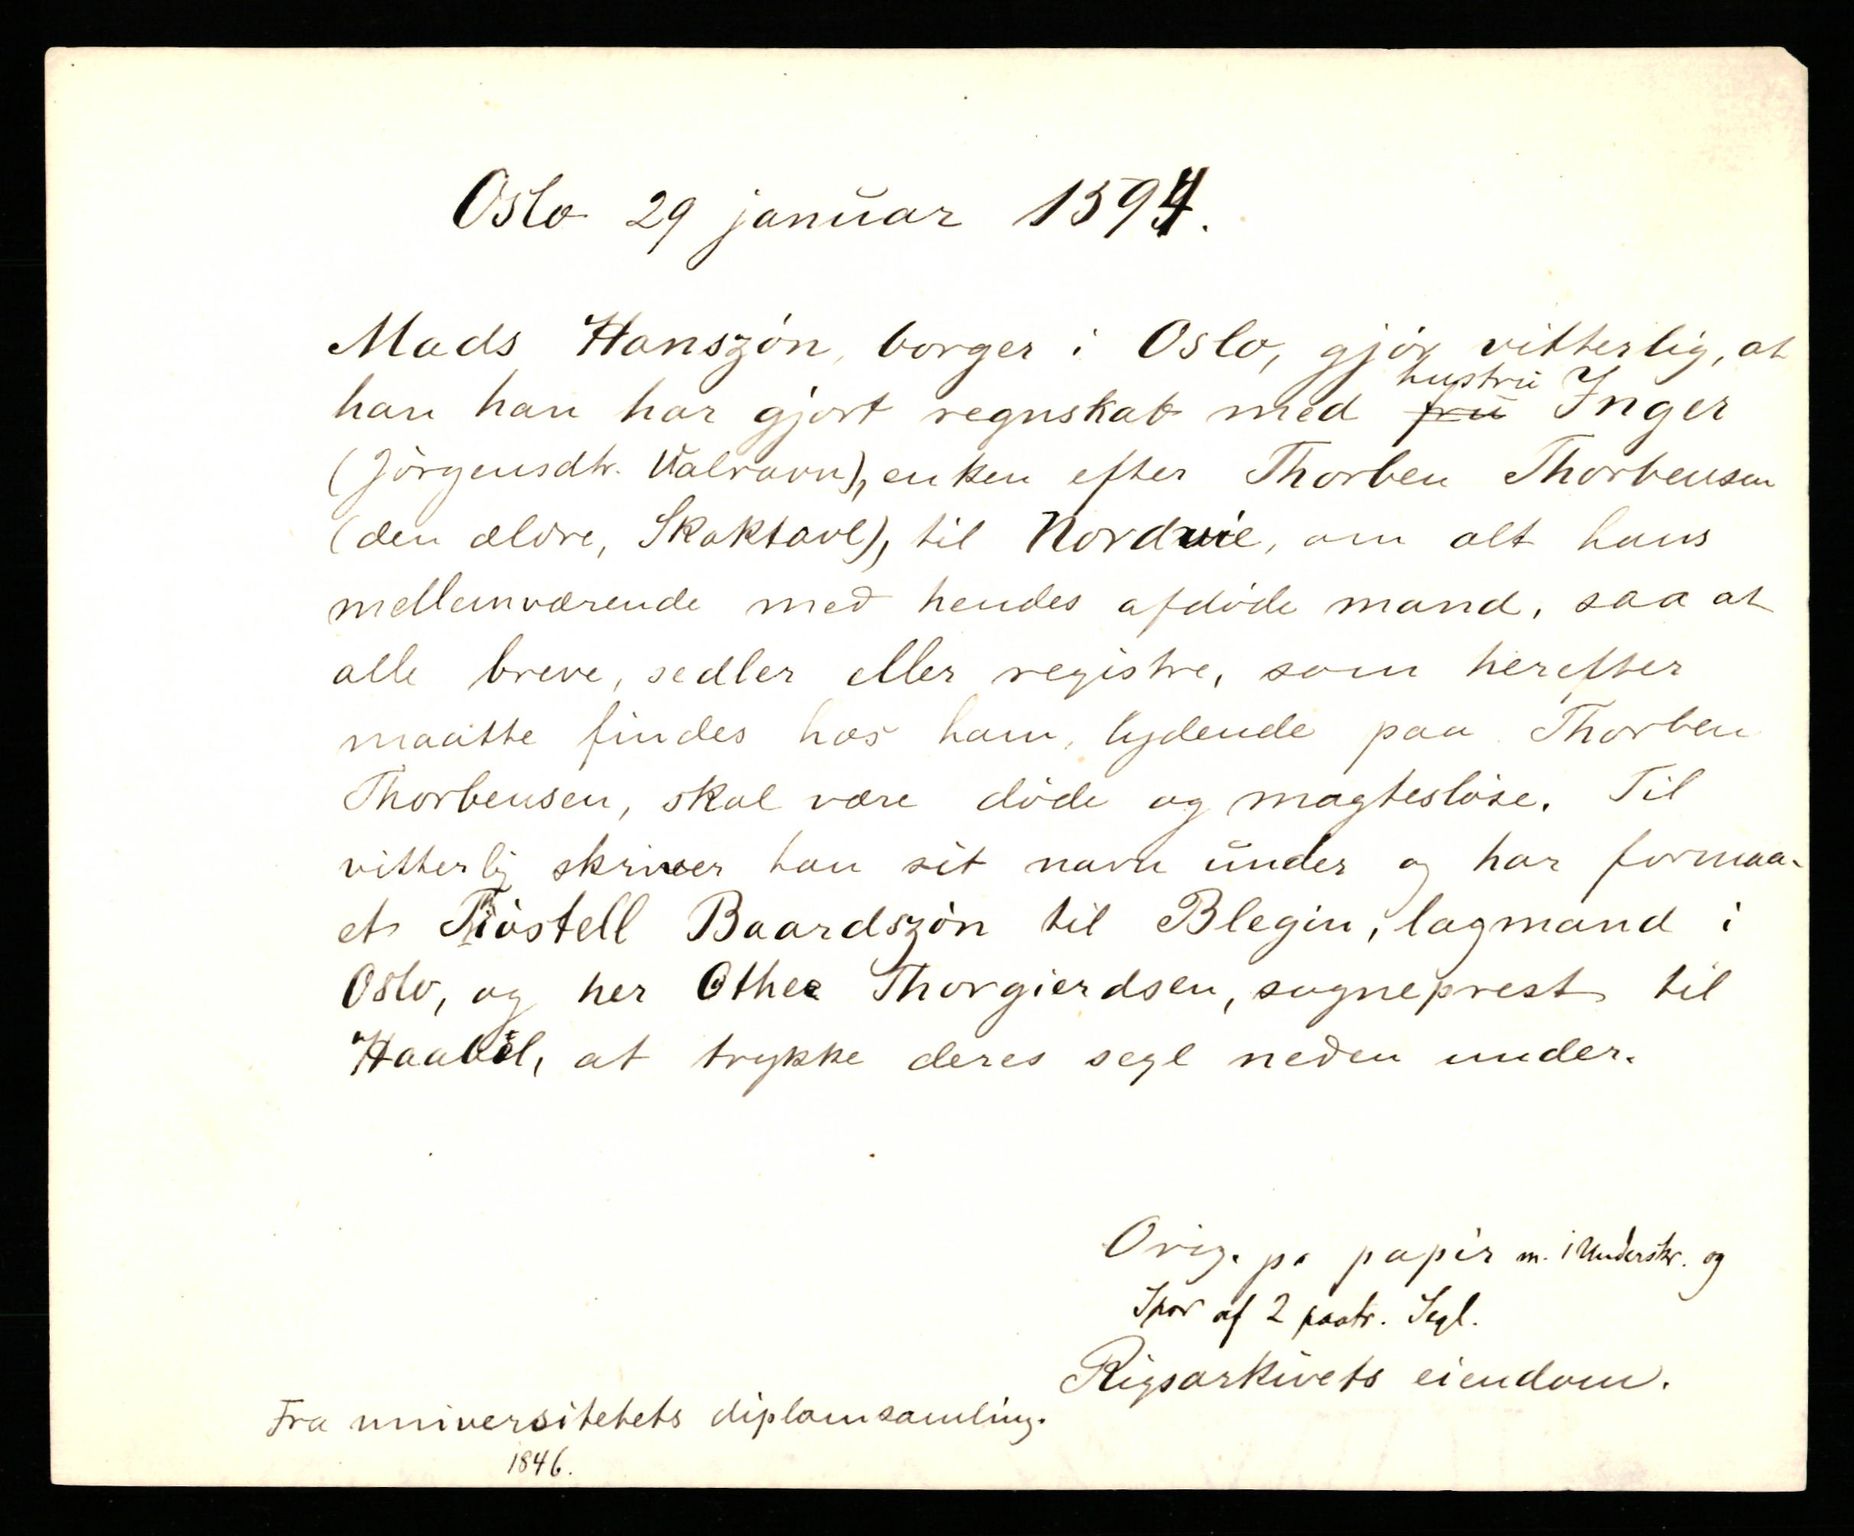 Oslo 29 januar 1594.
Mads Hanszøn, borger i Oslo, gjør vitterlig, at
han han har gjort regnskab med ~~fru~~ hustru Inger
(Jörgensdtr. Valravn), enken efter Thorben Thorbensen
(den ældre, Skaktavl), til Nordvie, om alt hans
mellemværende med hendes afdøde mand, saa at
alle breve, sedler eller registre, som herefter
maatte findes hos ham, lydende paa Thorben
Thorbensen, skal være døde og magtesløse. Til
vitterlig skriver han sit navn under og har formaa-
et Tröstell Baardszøn til Blegin, lagmand i
Oslo, og her Othe Thorgierdsen, sogneprest til
Haabøl, at trykke deres segl neden under.
Orig. p. papir m. 1 Underskr. og
Spor af 2 paatr. Segl.
Rigsarkivets eiendom.
Fra universitetets diplomsamling.
1846.